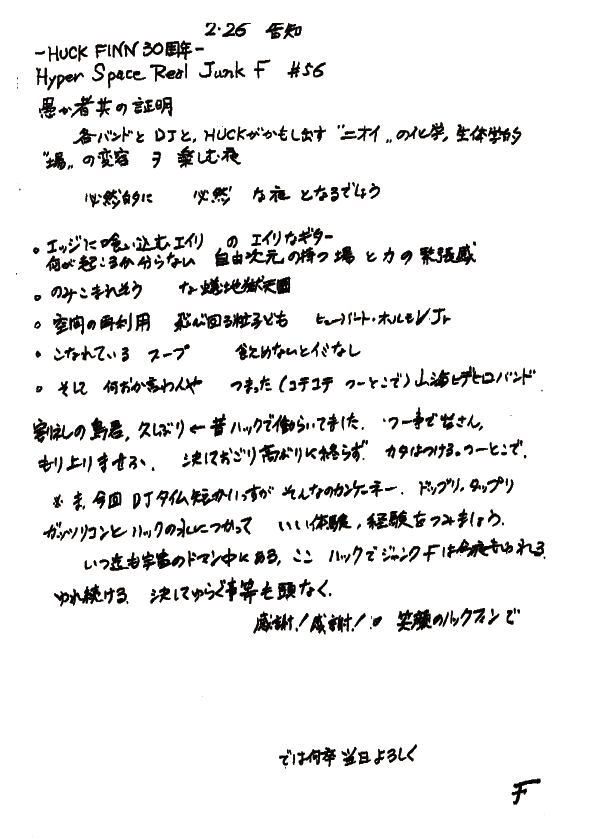 2.26 告知
-HUCK FINN 30周年-
Hyper Space Real Junk F #56
愚か者共の証明
各バンドと DJと、HUCKがかもし出す "ニオイ" の化学、生体学的
"場" の変容 ヲ 楽しむ夜
必然的に 必然 な夜 となるでしょう
。エッジに喰い込むエイリ の エイリなギター
何が起こるか分らない 自由次元の持つ場と力の緊張感
。のみこまれそう な蟻地獄天国
。空間の再利用 飛び回る粒子ども ヒューバート・ホルモン Jr
・こなれている スープ 飲めないとイミなし
。そして 何おか言わんや つまった (コテコテ つーとこで) 山海ヒデヒロバンド
の鳥君、久しぶり ← 昔ハックで働らいてました. つー事で皆さん、
もり上りませう 決しておごり高ぶりに終らず. カタはつける。つーとこで.
※ ま、今回 DJタイム短かいっすが そんなのカンケーネー. ドップリ、タップリ
ガッツリコンと ハックの水につかって いい体験、経験をつみましょう.
いつ迄も宇宙のドマン中にある、ここ ハックでジャンクFは今夜も
ゆれ続ける. 決してゆらぐ事等も頭なく.
感謝! 感謝! 笑顔のハックフィンで
では何卒 当日よろしく
F